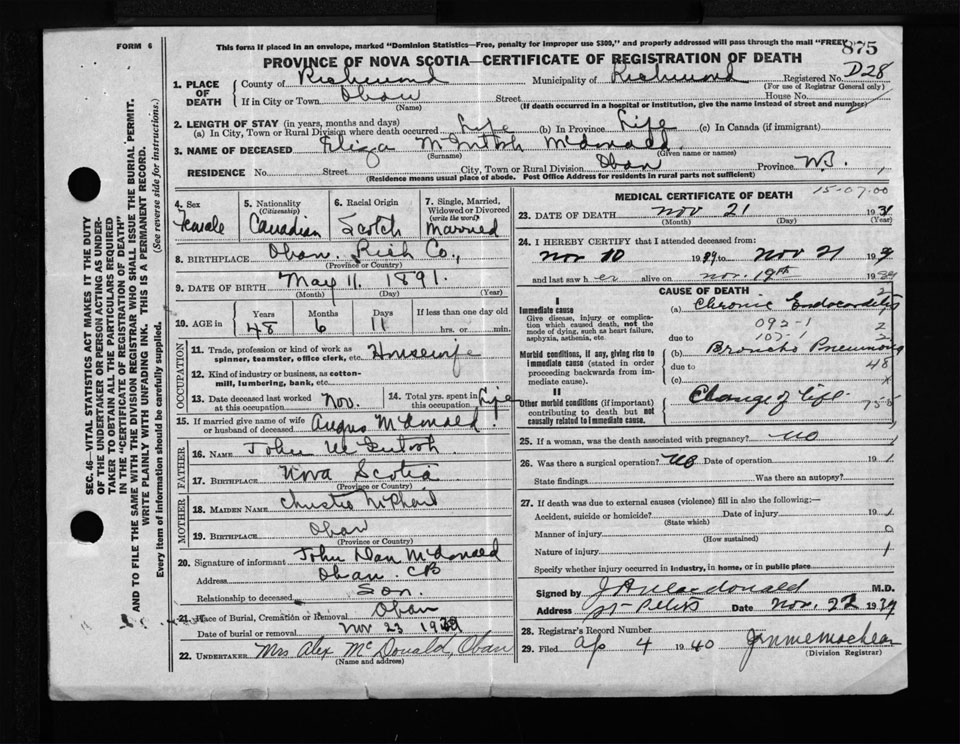 FORM 6
This form if placed in an envelope, marked "Dominion Statistics—Free, penalty for improper use $300," and properly addressed will pass through the mail "FREE"
875
PROVINCE OF NOVA SCOTIA—CERTIFICATE OF REGISTRATION OF DEATH
D28
1. PLACE OF DEATH
County of Richmond Municipality of Richmond Registered No.
(For use of Registrar General only)
If in City or Town Oban Street House No.
(Name) (If death occurred in a hospital or institution, give the name instead of street and number)
2. LENGTH OF STAY (in years, months and days)
(a) In City, Town or Rural Division where death occurred Life (b) In Province Life (c) In Canada (if immigrant)
3. NAME OF DECEASED Eliza McIntosh McDonald
(Surname) (Given name or names)
RESIDENCE No. Street City, Town or Rural Division Oban Province
(Residence means usual place of abode. Post Office Address for residents in rural parts not sufficient)
4. Sex
Female
5. Nationality
(Citizenship)
Canadian
6. Racial Origin
Scotch
7. Single, Married, Widowed or Divorced
(write the word)
Married
8. BIRTHPLACE Oban Rich Co.,
(Province or Country)
9. DATE OF BIRTH May 11. 1891.
(Month) (Day) (Year)
10. AGE in
Years Months Days If less than one day old
48 6 11 hrs. or min.
OCCUPATION
11. Trade, profession or kind of work as spinner, teamster, office clerk, etc. Housewife
12. Kind of industry or business, as cotton-mill, lumbering, bank, etc.
13. Date deceased last worked at this occupation Nov.
14. Total yrs. spent in this occupation Life
15. If married give name of wife or husband of deceased Angus McDonald
FATHER
16. NAME John McIntosh
17. BIRTHPLACE Nova Scotia
(Province or Country)
MOTHER
18. MAIDEN NAME
19. BIRTHPLACE Oban
(Province or Country)
20. Signature of informant John Dan McDonald
Address Oban. CB
Relationship to deceased Son.
21. Place of Burial, Cremation or Removal Oban
Date of burial or removal Nov 23 1939
22. UNDERTAKER Mrs Alex McDonald, Oban
(Name and address)
MEDICAL CERTIFICATE OF DEATH
15-07-00
23. DATE OF DEATH Nov 21 193
(Month) (Day) (Year)
24. I HEREBY CERTIFY that I attended deceased from:
Nov 10 Nov 21
and last saw her alive on Nov. 19th 1939
CAUSE OF DEATH
I
Immediate cause
Give disease, injury or complication which caused death, not the mode of dying, such as heart failure, asphyxia, asthenia, etc.
(a) Chronic Endocarditis
092-1
107-1
due to
Morbid conditions, if any, giving rise to immediate cause (stated in order proceeding backwards from immediate cause).
(b) Broncho Pneumonia
due to
48
(c)
II
Other morbid conditions (if important) contributing to death but not causally related to immediate cause.
Change of Life
25. If a woman, was the death associated with pregnancy? No
26. Was there a surgical operation? No Date of operation 19
State findings Was there an autopsy?
27. If death was due to external causes (violence) fill in also the following:—
Accident, suicide or homicide? Date of injury 19
(State which)
Manner of injury 0
(How sustained)
Nature of injury 1
Specify whether injury occurred in industry, in home, or in public place
Signed by Macdonald M.D.
Address St. Peters Date Nov. 22 1939
28. Registrar's Record Number
29. Filed Ap 4 1940
(Division Registrar)
SEC. 46—VITAL STATISTICS ACT MAKES IT THE DUTY
OF THE UNDERTAKER OR PERSON ACTING AS UNDER-
TAKER TO OBTAIN ALL THE PARTICULARS REQUIRED
IN THE "CERTIFICATE OF REGISTRATION OF DEATH"
AND TO FILE THE SAME WITH THE DIVISION REGISTRAR WHO SHALL ISSUE THE BURIAL PERMIT.
WRITE PLAINLY WITH UNFADING INK. THIS IS A PERMANENT RECORD.
Every item of information should be carefully supplied. (See reverse side for instructions.)